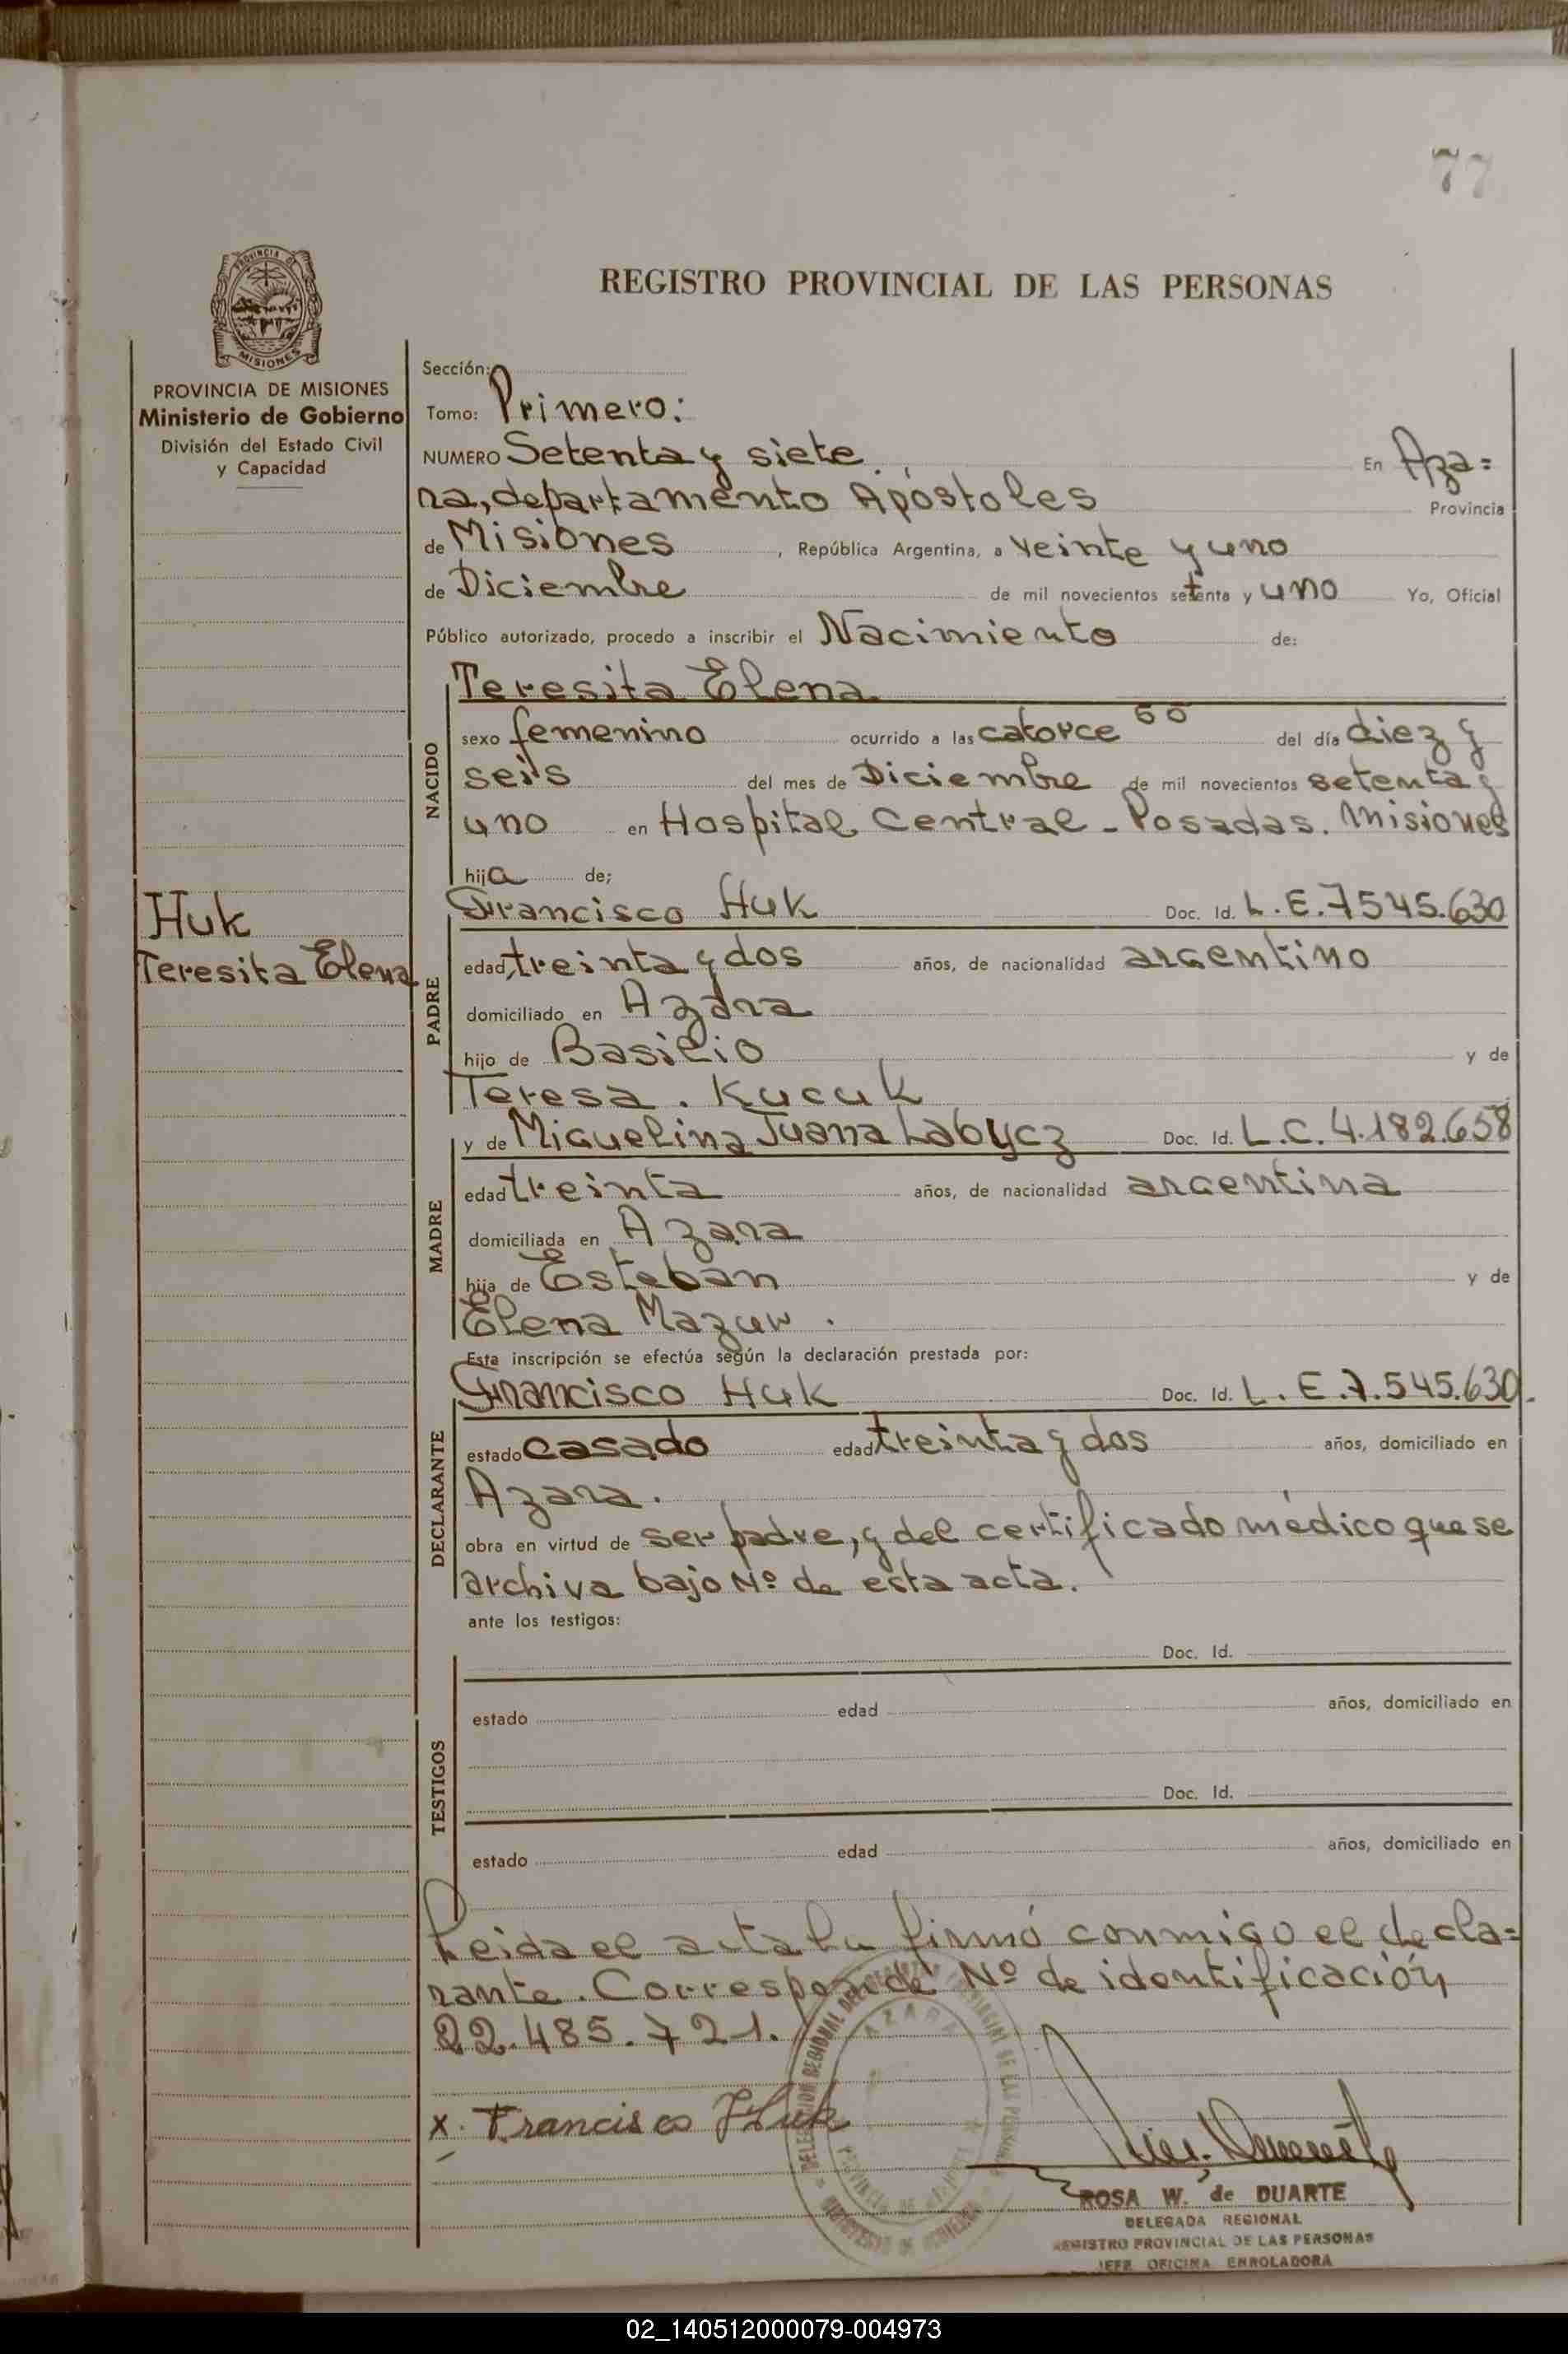 77
PROVINCIA DE
MISIONES
REGISTRO PROVINCIAL DE LAS PERSONAS
PROVINCIA DE MISIONES
Ministerio de Gobierno
División del Estado Civil
y Capacidad
Huk
Teresita Elena
Sección:
Tomo: Primero:
NUMERO Setenta y siete. En Aza=
ra, departamento Apóstoles Provincia
de Misiones, República Argentina, a veinte y uno
de Diciembre de mil novecientos setenta y uno Yo, Oficial
Público autorizado, procedo a inscribir el Nacimiento de:
NACIDO
Teresita Elena
sexo femenino ocurrido a las catorce del día diez y
seis del mes de Diciembre de mil novecientos setenta y
uno en Hospital Central - Posadas. Misiones
hija de;
PADRE
Francisco Huk Doc. Id. L.E. 7545.630
edad treinta y dos años, de nacionalidad argentino
domiciliado en Azara
hijo de Basilio y de
Teresa. Kucuk
MADRE
y de Miguelina Juana Labycz Doc. Id. L.C. 4.182.658
edad treinta años, de nacionalidad argentina
domiciliada en Azara
hija de Esteban y de
Elena Mazur.
Esta inscripción se efectúa según la declaración prestada por:
DECLARANTE
Francisco Huk Doc. Id. L.E. 7.545.630.
estado casado edad treinta y dos años, domiciliado en
Azara.
obra en virtud de ser padre, y del certificado médico que se
archiva bajo Nº de esta acta.
ante los testigos:
TESTIGOS
Doc. Id.
estado edad años, domiciliado en
Doc. Id.
estado edad años, domiciliado en
Leida el acta la firmó conmigo el decla=
rante. Corresponde Nº de identificación
22.485.721.
AZARA
x. Francisco Huk
ROSA W. de DUARTE
DELEGADA REGIONAL
REGISTRO PROVINCIAL DE LAS PERSONAS
JEFE OFICINA ENROLADORA
02_140512000079-004973